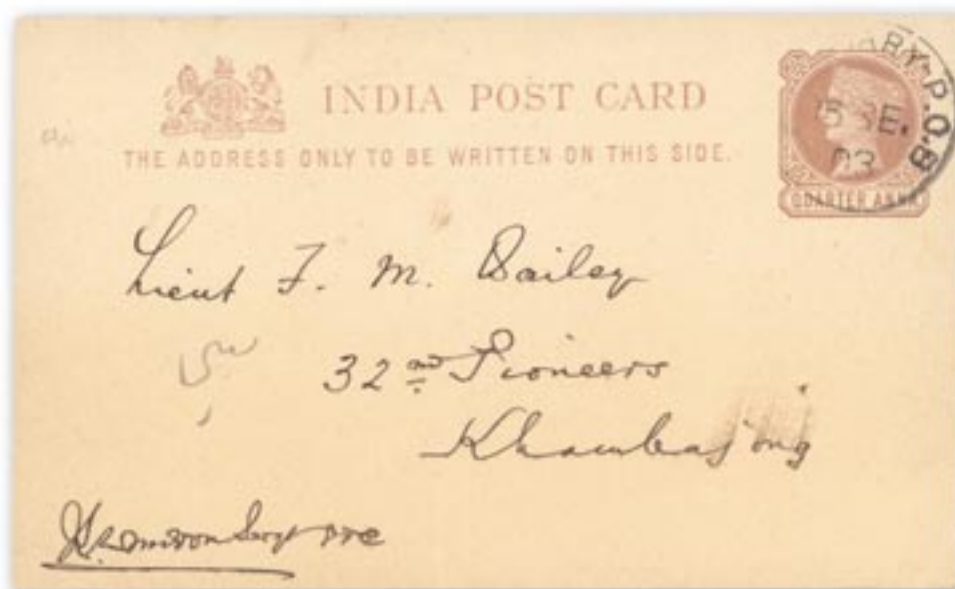 INDIA POST CARD
THE ADDRESS ONLY TO BE WRITTEN ON THIS SIDE.
RY-P.O.8
5 SE.
03
QUARTER ANNA
Lieut F. M. Bailey
32nd Pioneers
Khambajong